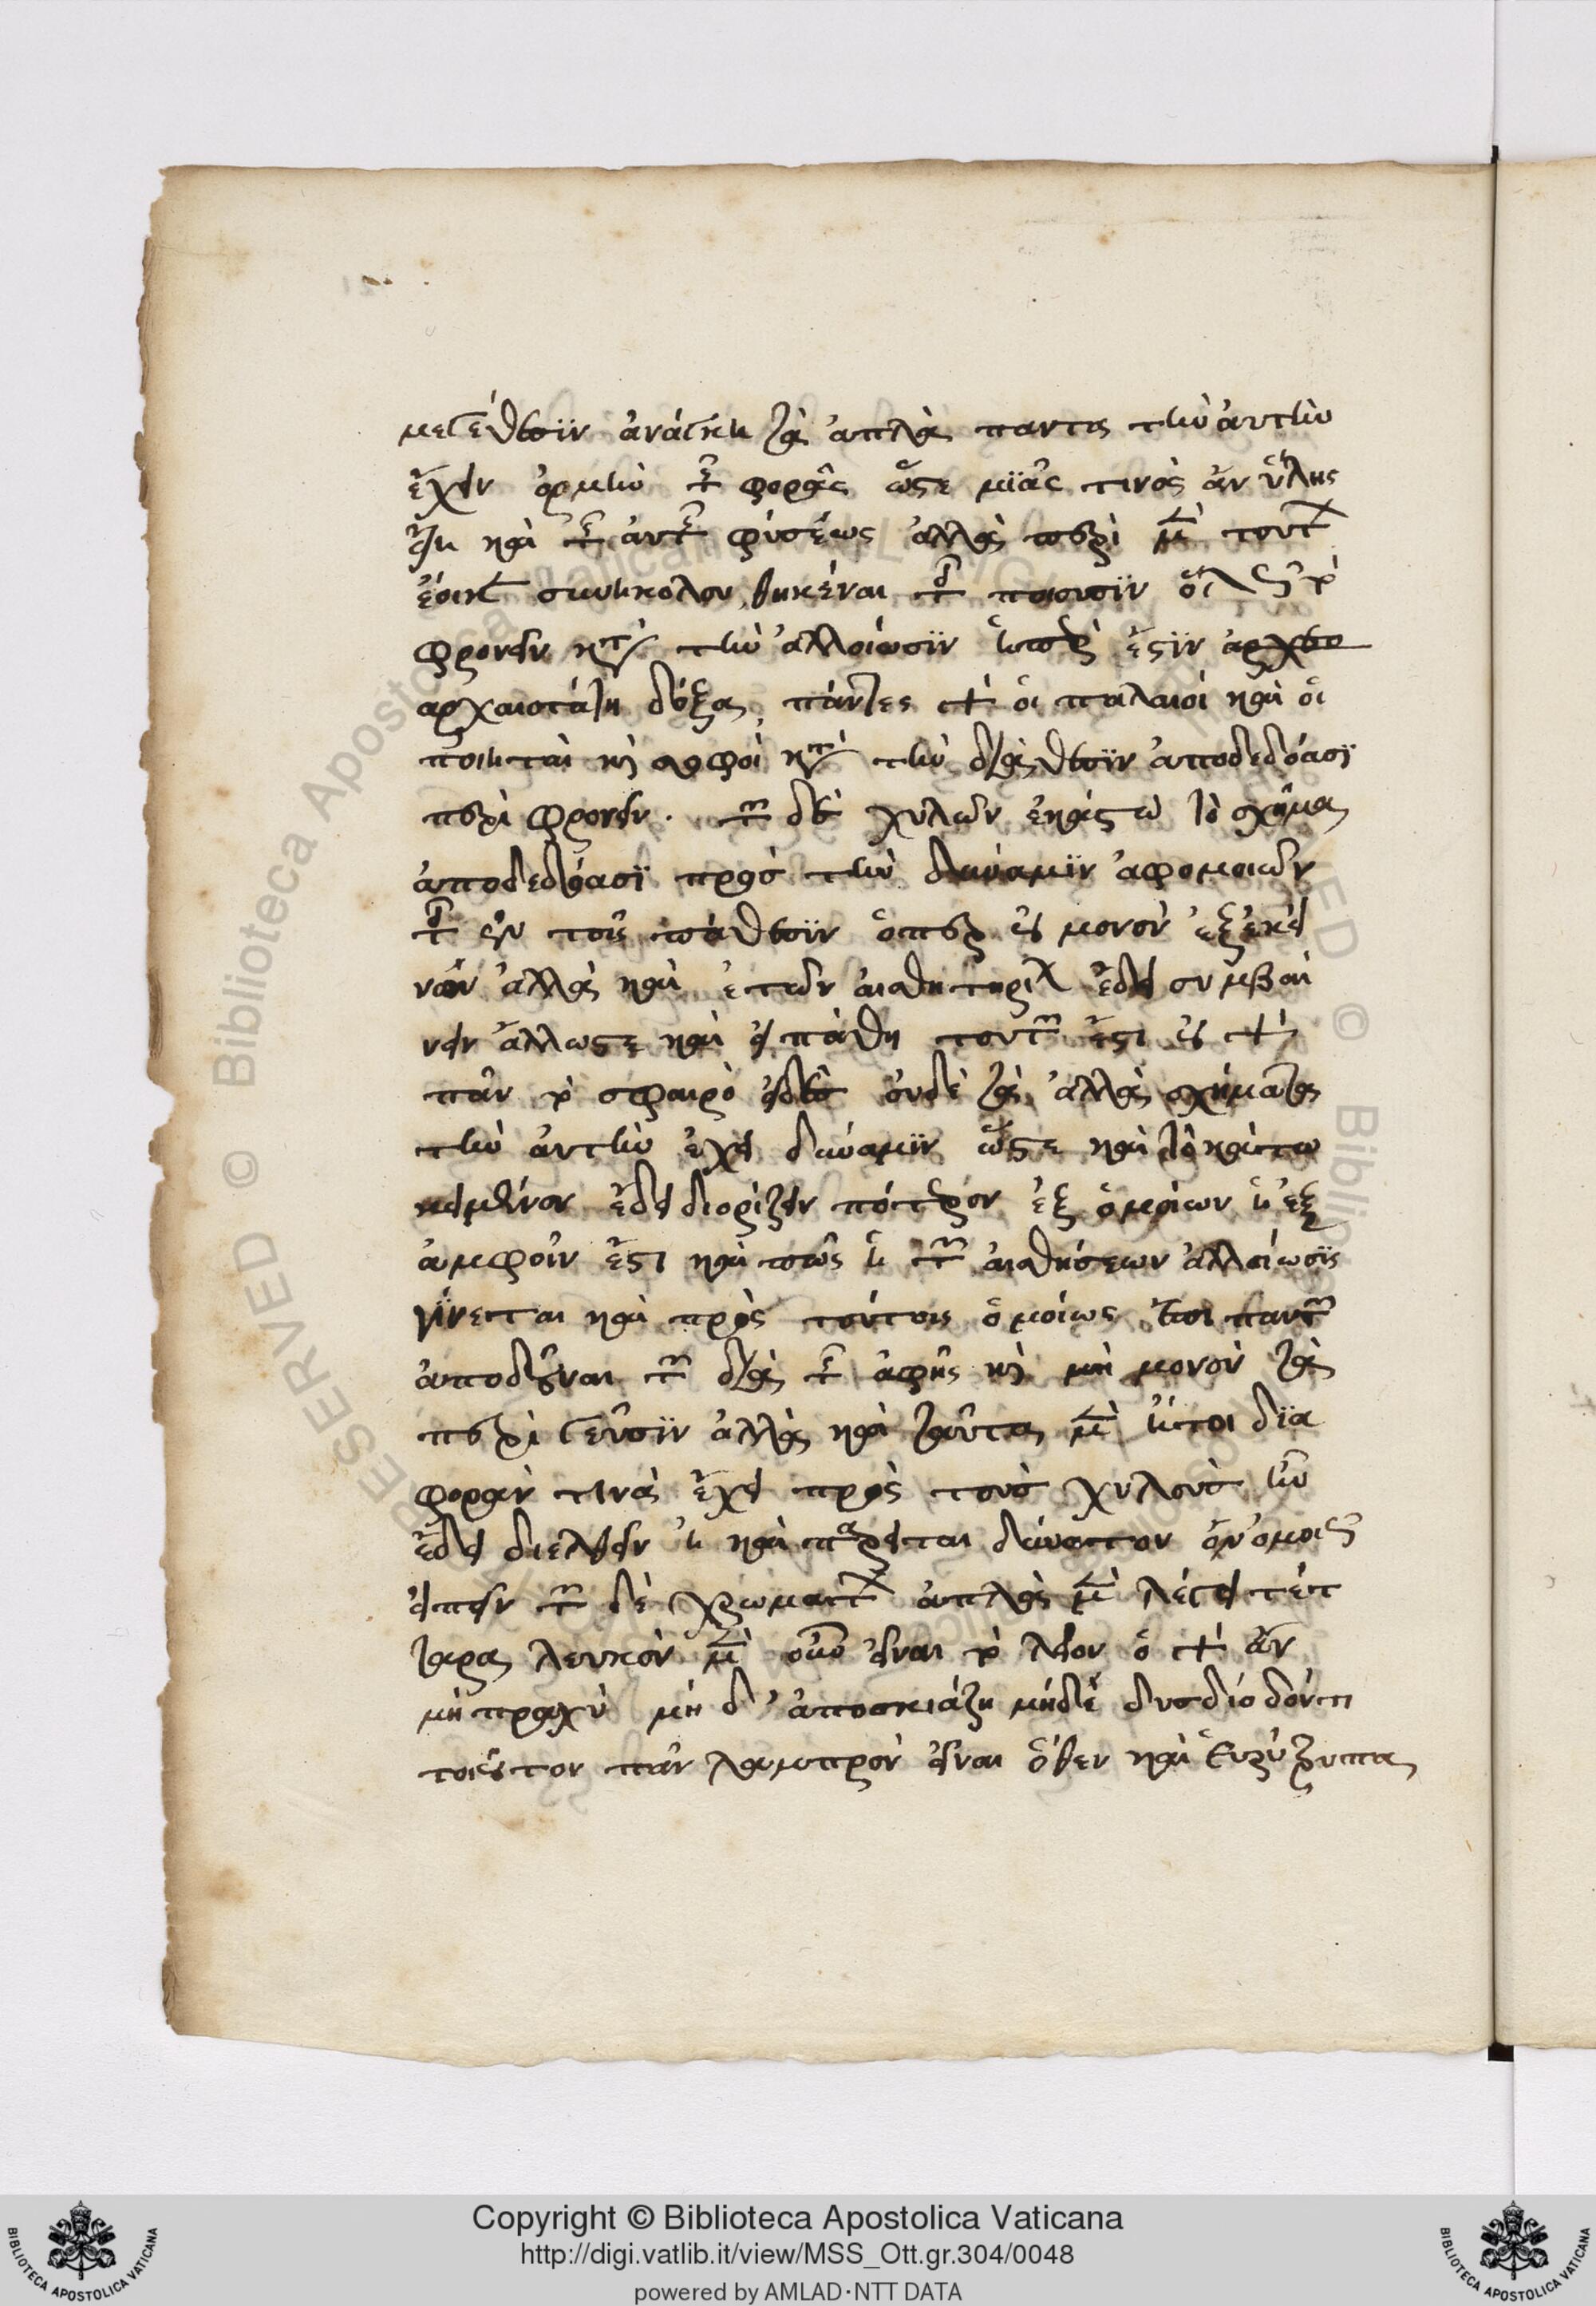 μεγέθεσιν ἀνάγκη τὰ ἁπλᾶ παντα τὴν ἀυτὴν
ἔχειν ὁρμὴν τῆς φορᾶς ὥστε μιᾶς τινὸς ἂν ὕλης
εἴη καὶ τῆς ἀυτῆς φύσεως ἀλλὰ περὶ μὲν τούτων
ἔοικε συνηκολουθηκέναι τοῖς ποιοῦσιν ὅλως τὸ
φρονεῖν κατὰ τὴν ἀλλοίωσιν ἥπερ ἐστὶν
ἀρχαιοτάτη δόξα, πάντες γὰρ οἱ παλαιοὶ καὶ οἱ
ποιηταὶ καὶ σοφοὶ κατὰ τὴν διάθεσιν ἀποδιδόασι
περὶ φρονεῖν. τῶν δὲ χυλῶν ἑκάστω τὸ σχῆμα
ἀποδιδόασι πρὸς τὴν δύναμιν ἀφομοιῶν
τοῖς ἐν τοῖς πάθεσιν ὅπερ οὐ μόνον ἐξ ἐκεί
νων ἀλλὰ καὶ ἐκ τῶν αἰσθητηρίων ἔδει συμβαί
νειν ἄλλως τε καὶ εἰ πάθη τούτων ἐστὶ οὐ γὰρ
πᾶν τὸ σφαιροειδὲς οὐδὲ τὰ ἄλλα σχήματα
τὴν ἀυτὴν ἔχει δύναμιν ὥστε καὶ τὸ κάτω
κείμενον ἔδει διορίζειν πότερον ἐξ ὁμοίων ἢ ἐξ
ἀμφοῖν ἐστι καὶ πῶς ἡ τῶν αἰσθήσεων ἀλλοίωσις
γίνεται καὶ πρὸς τούτοις ὁμοίως ἐπὶ πάντων
ἀποδοῦναι τῶν διὰ τῆς ἁφῆς καὶ μὴ μόνον τὰ
περὶ γεῦσιν ἀλλὰ καὶ ταῦτα μὲν ἤτοι δια
φορὰν τινὰ ἔχει πρὸς τοὺς χυλοὺς ἣν
ἔδει διελεῖν ἢ καὶ παρεῖται δύνατον ὂν ὁμοίως
εἰπεῖν τῶν δὲ χρωμάτων ἁπλᾶ μὲν λέγει τέτ
ταρα λευκὸν μὲν οὖν εἶναι τὸ λεῖον ὃ γὰρ ἂν
μὴ τραχὺ μὴ δ' ἀποσκιάζη μηδὲ δυσδίοδον ἦ
τοιοῦτον πᾶν λαμπρὸν εἶναι ὅθεν καὶ ἐυθύτρυπα